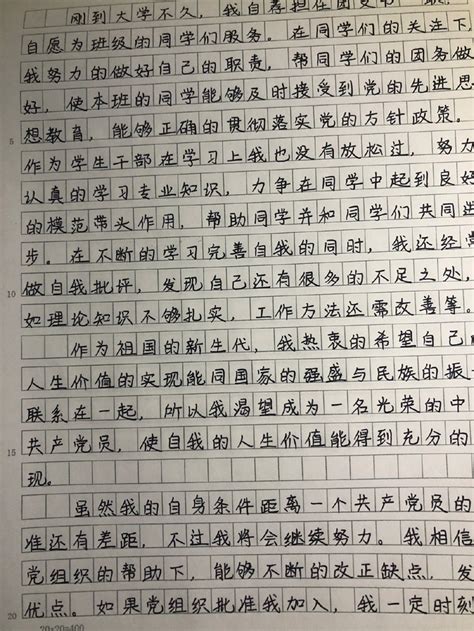 刚到大学不久，我自荐担任团支书一职，
自愿为班级的同学们服务。在同学们的关注下
我努力的做好自己的职责，帮同学们的团务做
好，使本班的同学能够及时接受到党的先进思
5 想教育，能够正确的贯彻落实党的方针政策。
作为学生干部在学习上我也没有放松过，努力
认真的学习专业知识，力争在同学中起到良好
的模范带头作用，帮助同学并和同学们共同进
步。在不断的学习完善自我的同时，我还经
10 做自我批评，发现自己还有很多的不足之处，
如理论知识不够扎实，工作方法还需改善等。
作为祖国的新生代，我热衷的希望自己
人生价值的实现能同国家的强盛与民族的振
联系在一起，所以我渴望成为一名光荣的中
15 共产党员，使自我的人生价值能得到充分的
现。
虽然我的自身条件距离一个共产党员的
准还有差距，不过我将会继续努力。我相信
党组织的帮助下，能够不断的改正缺点，发
20 优点。如果党组织批准我加入，我一定时刻
20×20=400